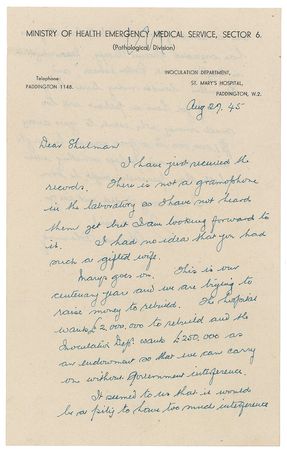 MINISTRY OF HEALTH EMERGENCY MEDICAL SERVICE, SECTOR 6.
(Pathological Division)
Telephone:
PADDINGTON 1148.
INOCULATION DEPARTMENT,
ST. MARY'S HOSPITAL,
PADDINGTON, W.2.
Aug 27. 45
Dear Thulman
I have just received the
records. There is not a gramophone
in the laboratory so I have not heard
them yet but I am looking forward to
it. I had no idea that you had
such a gifted wife.
Marys goes on. This is our
centenary year and we are trying to
raise money to rebuild. The hospital
wants £2,000,000 to rebuild and the
Inoculation Dept. wants £250,000 as
an endowment so that we can carry
on without Government interference.
It seemed to us that it would
be a pity to have too much interference